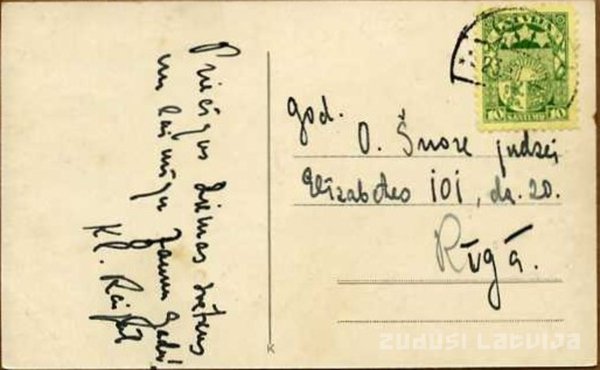 Priecīgus Ziemas svētkus
un laimīgu Jauno gadu!
Kl.
god.
O. Šnore jndzei
Elizabetes 101, dz. 20.
Rīgā.
LATVIJA
10 10
SANTIMU
K
ZUDUSI LATVIJA